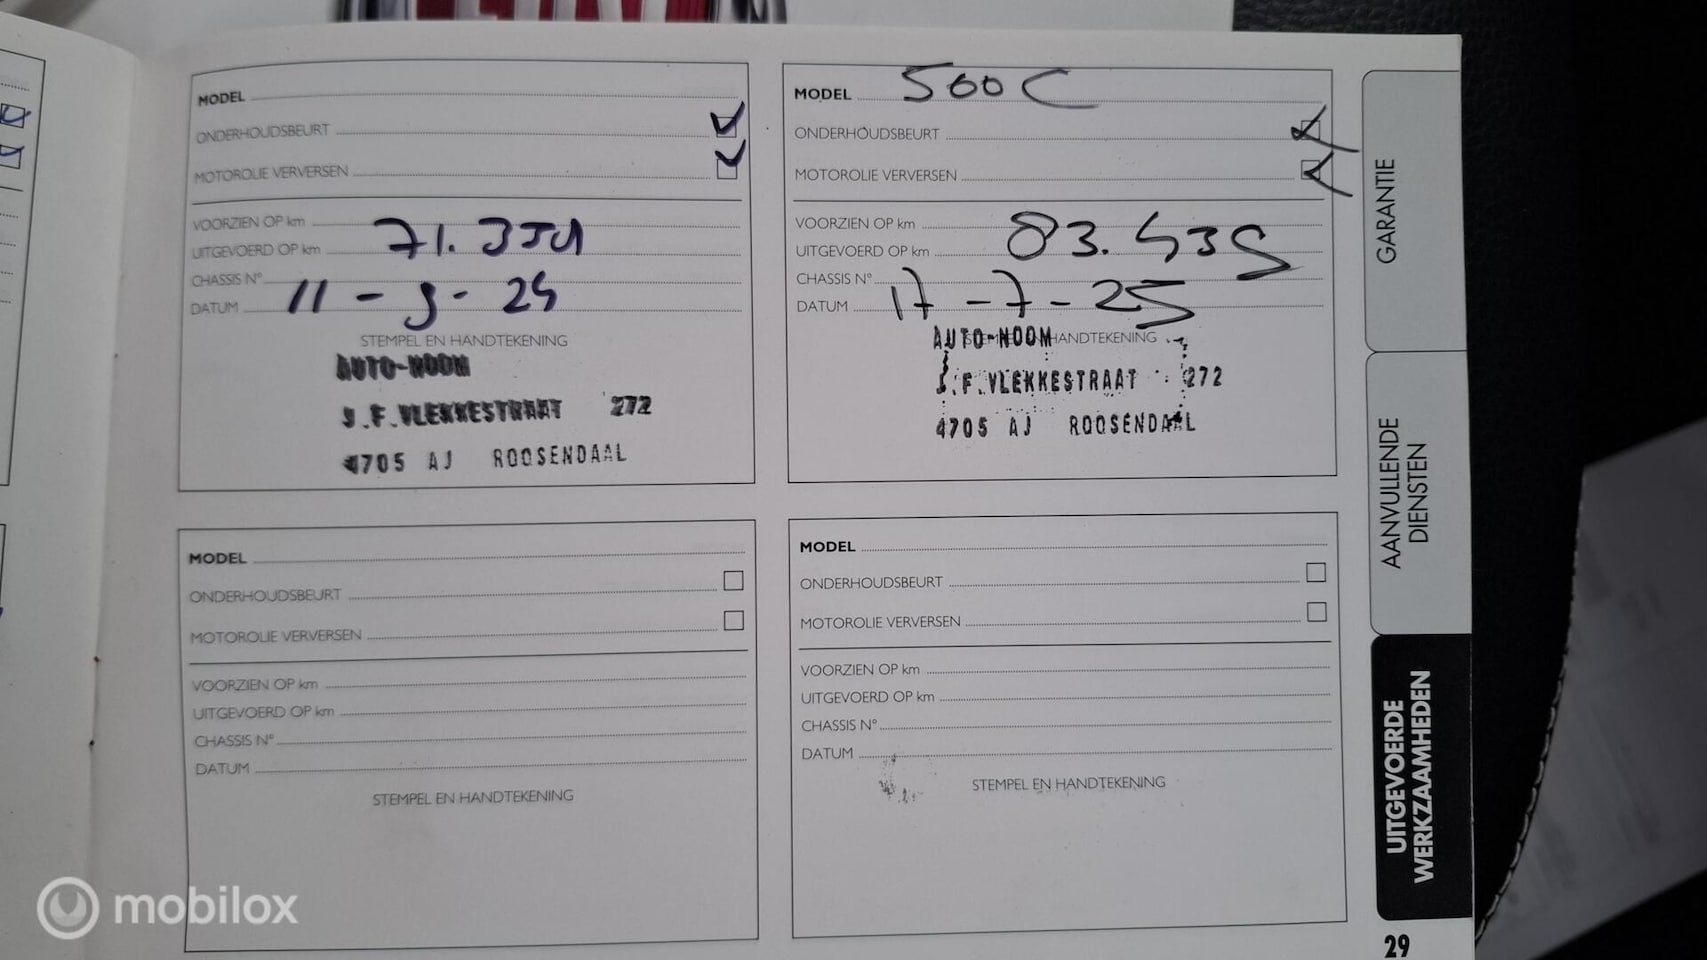 MODEL
ONDERHOUDSBEURT
MOTOROLIE VERVERSEN
VOORZIEN OP km
UITGEVOERD OP km 71.
CHASSIS N°
DATUM 11 -
STEMPEL EN HANDTEKENING
AUTO-NOOM
J.F.VLEKKESTRAAT 272
4705 AJ ROOSENDAAL
MODEL 500C
ONDERHOUDSBEURT
MOTOROLIE VERVERSEN
VOORZIEN OP km
UITGEVOERD OP km 83.
CHASSIS N°
DATUM 17-7-25
HANDTEKENING
AUTO-NOOM
J.F.VLEKKESTRAAT 272
4705 AJ ROOSENDAAL
MODEL
ONDERHOUDSBEURT
MOTOROLIE VERVERSEN
VOORZIEN OP km
UITGEVOERD OP km
CHASSIS N°
DATUM
STEMPEL EN HANDTEKENING
MODEL
ONDERHOUDSBEURT
MOTOROLIE VERVERSEN
VOORZIEN OP km
UITGEVOERD OP km
CHASSIS N°
DATUM
STEMPEL EN HANDTEKENING
GARANTIE
AANVULLENDE
DIENSTEN
UITGEVOERDE
WERKZAAMHEDEN
29
mobilox